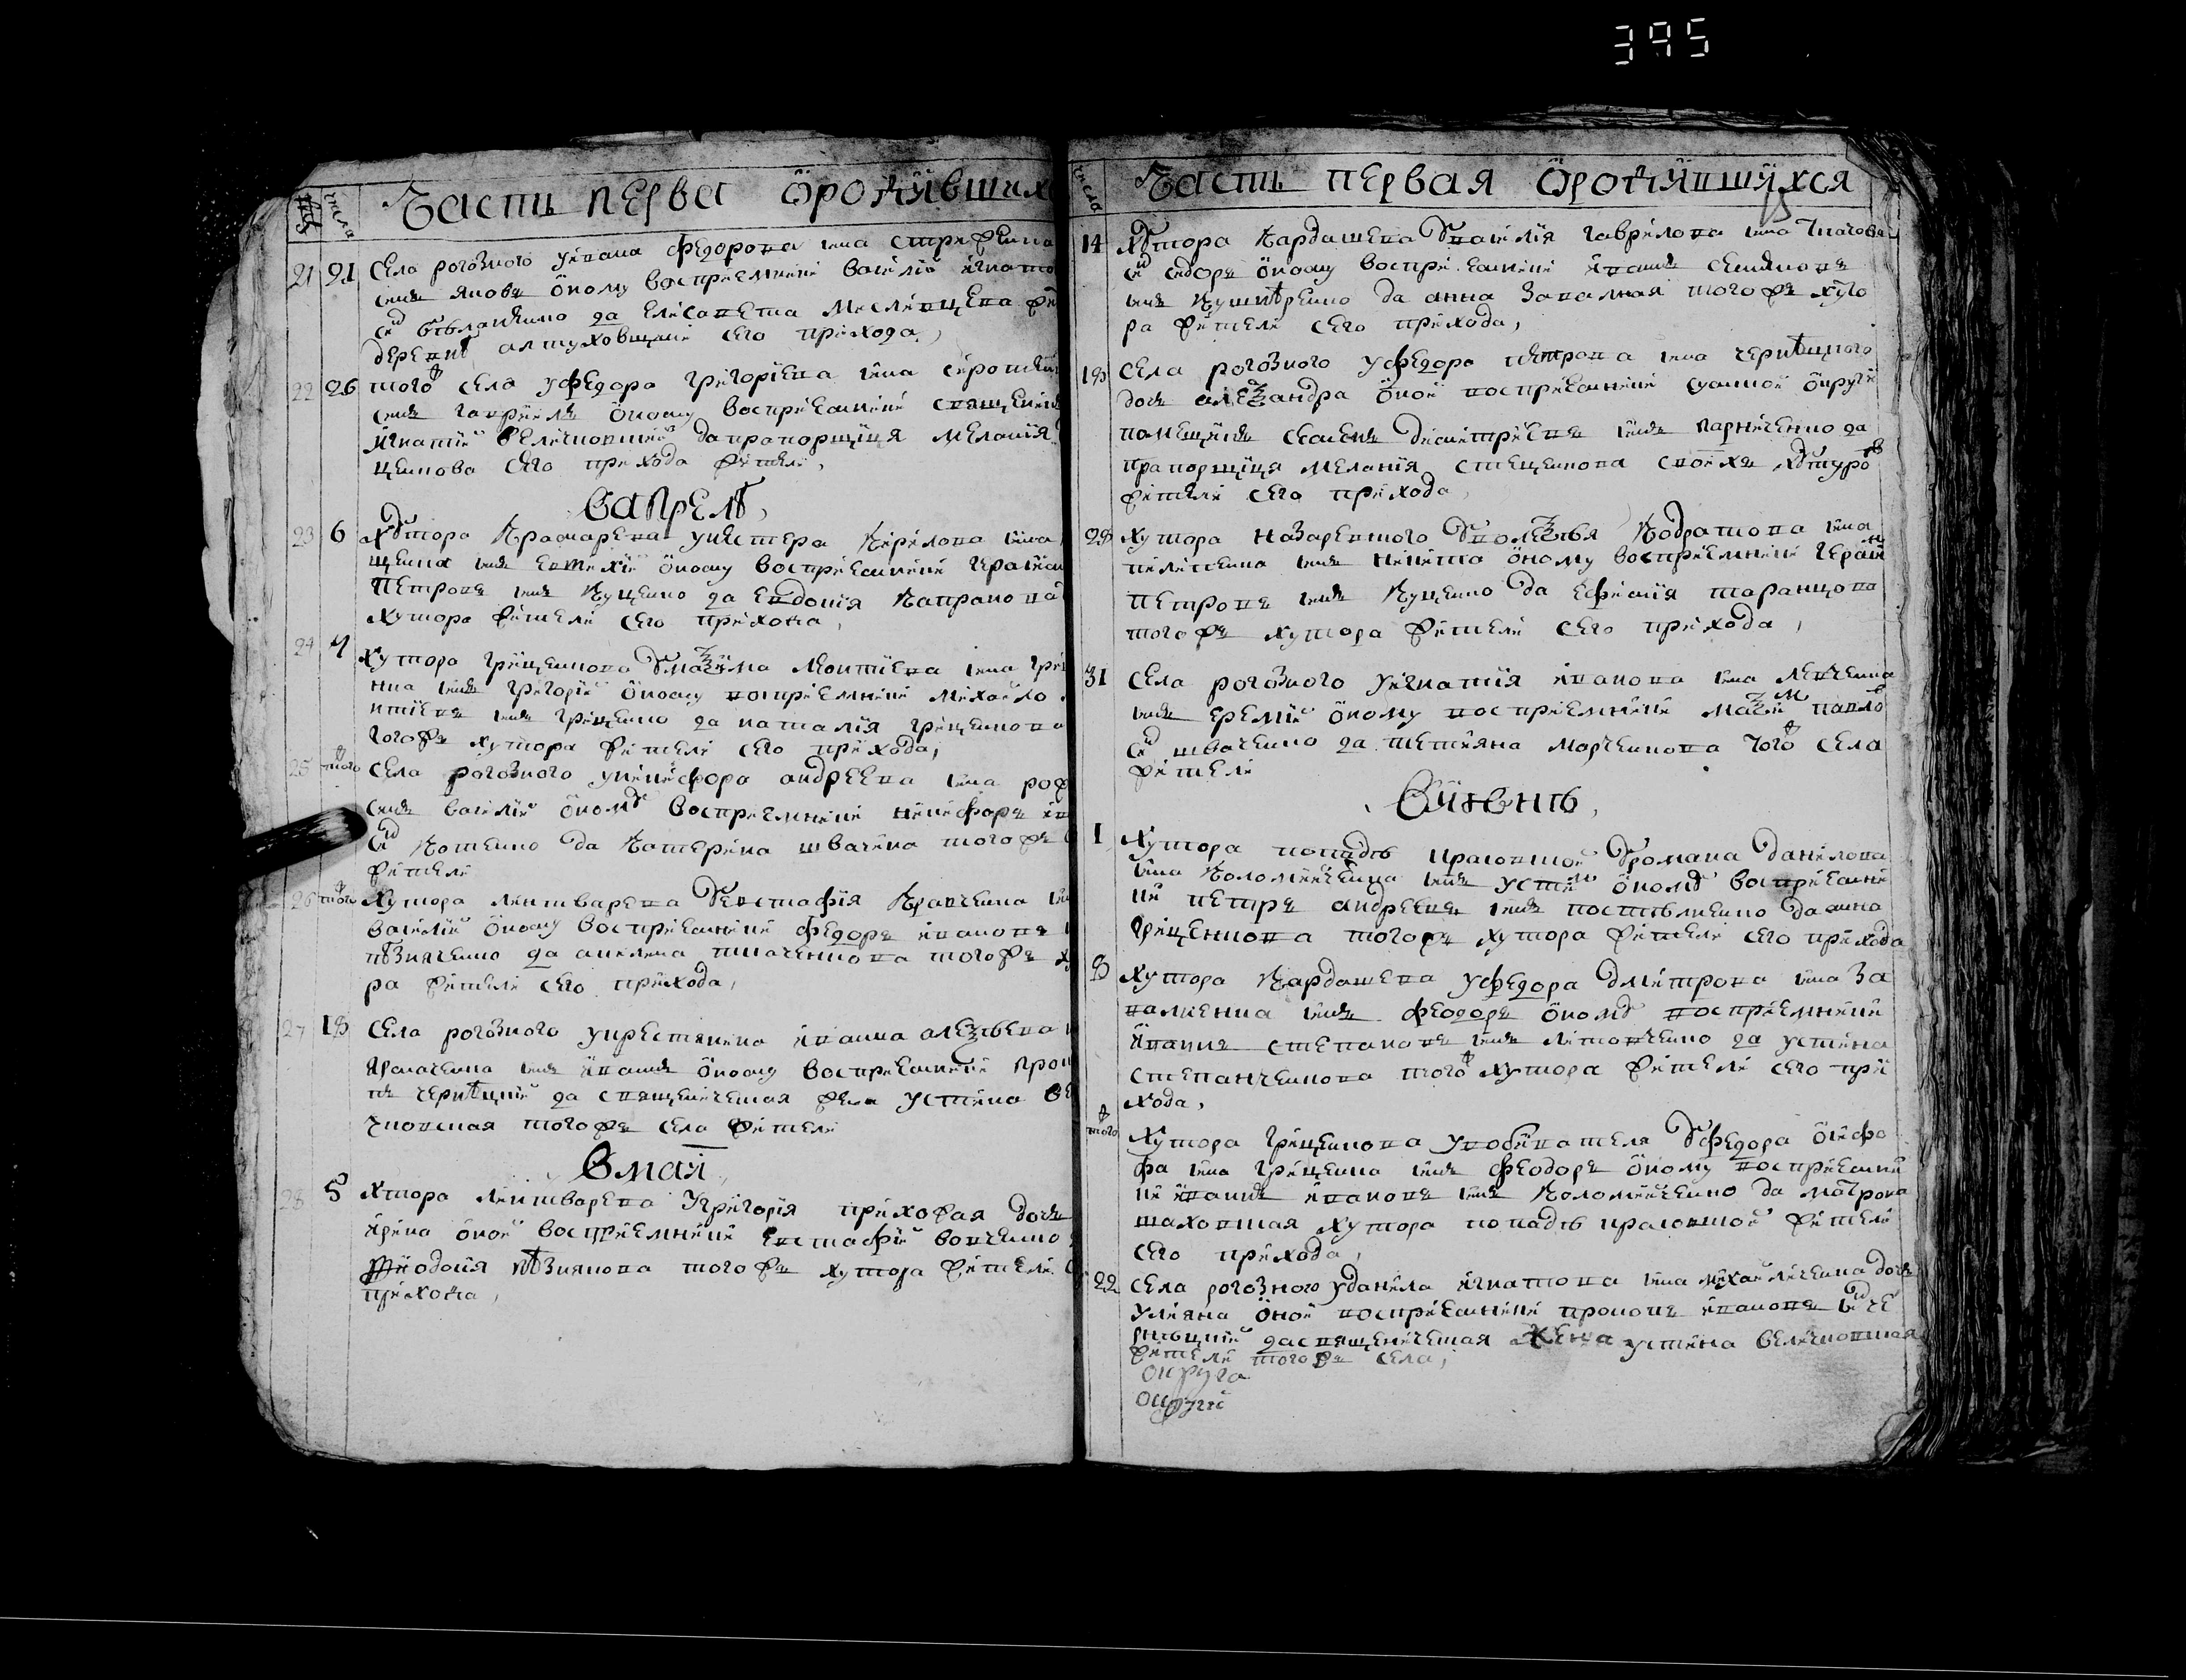 395
Часть перва öрожившихс
числа
21 21 Села рогозного уивана федорова сна стреж
снъ яковъ öному восприемники василий игнато
снъ била да елисавета маслинцева жи
деревни алтуховщини сего прихода,
22 26 того ж села уфедора григориева сна сиротен
снъ гавриилъ öному восприемники священик
игнатий величковский да прапорщиця мелания
ценкова сего прихода жители,
Вапреле,
23 6 Хутора Крамарева унестера Кирилова сна
сна снъ евтихий öному восприемники герасим
петровъ снъ Куценко да евдокия Капранова
хутора жители сего прихода,
24 7 хутора грищенкова умаѯима леонтиева сна гри
нка снъ григорий öному восприемники михайло
нтиевъ снъ грищенко да наталия грищенкова
тогожъ хутора жители сего прихода,
25 того ж села рогозного уникифора андреева сна
снъ василий öному восприемники никифоръ ив
снъ Котенко да Катерина швачина тогожъ
жители
26 того ж Хутора литварева уевстафия Кравченка
василий öному восприемники федоръ ивановъ
позняченко да акилина ткаченкова тогожъ ху
ра жители сего прихода,
27 18 Села рогозного укрестянина ивана алеѯѣева
ярмаченка снъ иванъ öному восприемники прок
пъ чернѣцкий да священическая жена устина ве
чковская тогожъ села жители
Вмаѣ
28 5 Хтора литварева угригория прихожая дочь
ирина öной восприемники евстафий вовченко
феодосия познякова тогожъ хутора жители
прихожа,
Часть первая öрожившихся
числа
14 Хутора Кардашева увасилия гаврилова сна ткачова
снъ сидоръ öному восприемники иванъ семеновъ
снъ Кушнѣренко да анна запалная тогожъ хуто
ра жители сего прихода,
18 Села рогозного уфедора петрова сна чернѣцкого
дочь алеѯандра öной восприемники сумской öкруги
помещикъ семенъ димитриевъ снъ карниченко да
прапорщиця мелания стеценкова своихъ хуторов
жители сего прихода,
28 Хутора назаренкого уалеѯѣя Кодратова сна
пилипенка снъ никита öному восприемники герасим
петровъ снъ Куценко да ефимия таранцова
тогожъ хутора жители сего прихода,
31 Села рогозного уигнатия иванова сна левченка
снъ еремий öному восприемники маѯим павлов
снъ швачченко да тетяна марченкова того ж села
жители
Виюнь,
1 Хутора попадѣ красовской уромана данилова
сна Коломийченка снъ устим öному восприемни
ки петръ андреевъ снъ да анна
грищенкова тогожъ хутора жители сего прихода
8 Хутора Кардашева уфедора дмитрова сна за
палненка снъ феодоръ öному восприемники
иванъ степановъ снъ литовченко да устина
степанченкова того ж хутора жители сего при
хода,
того ж Хутора грищенкова уобивателя уфедора
фа сна грищенка снъ феодоръ öному восприемни
ки иванъ ивановъ снъ Коломийченко да матрона
шаховская хутора попадѣ красовской жители
сего прихода,
22 Села рогозного уданила игнатова сна михайличенка дочь
улияна öной восприемники прокопъ ивановъ снъ че
рнецкий дасвященическая жена устина величковская
жители тогожъ села,
округа
округи